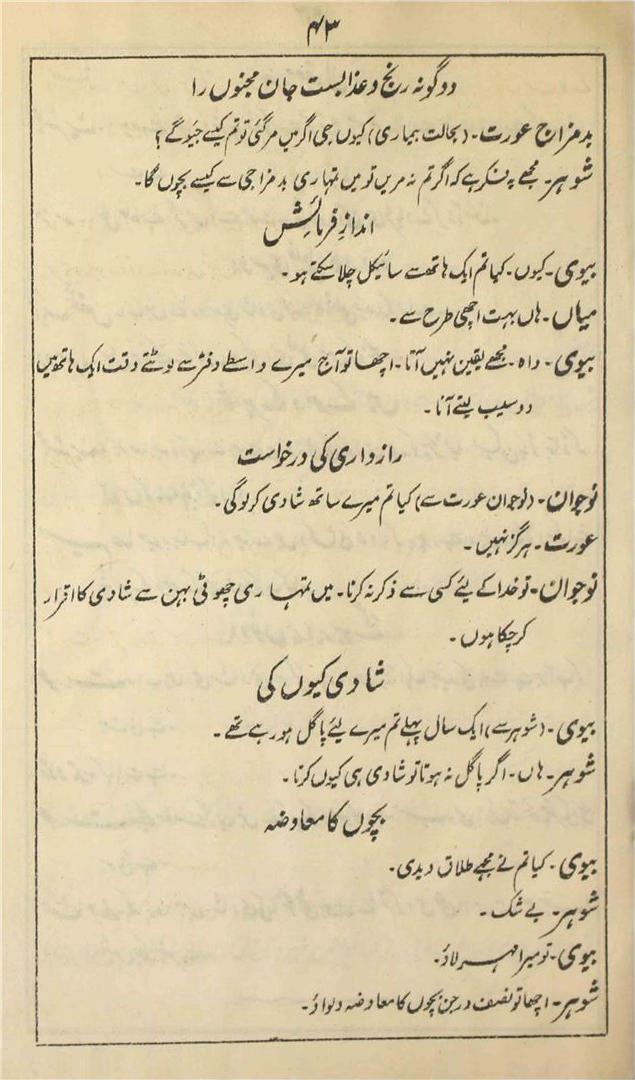 ۴۳
دوگونہ رنج و عذابست جان مجنوں را
بدمزاج عورت۔ (بحالت بیماری) کیوں جی اگر میں مر گئی تو تم کیسے جیو گے؟
شوہر۔ مجھے یہ فکر ہے کہ اگر تم نہ مریں تو میں تمہاری بدمزاجی سے کیسے بچوں گا۔
اندازِ فرمائش
بیوی۔ کیوں۔ کیا تم ایک ہاتھ سے سائیکل چلا سکتے ہو۔
میاں۔ ہاں بہت اچھی طرح سے۔
بیوی۔ واہ۔ مجھے یقین نہیں آتا۔ اچھا تو آج میرے واسطے دفتر سے لوٹتے وقت ایک ہاتھ میں
دو سیب لیتے آنا۔
رازداری کی درخواست
نوجوان۔ (نوجوان عورت سے) کیا تم میرے ساتھ شادی کر لو گی۔
عورت۔ ہرگز نہیں۔
نوجوان۔ تو خدا کے لیئے کسی سے ذکر نہ کرنا۔ میں تمہاری چھوٹی بہن سے شادی کا اقرار
کر چکا ہوں۔
شادی کیوں کی
بیوی۔ (شوہر سے) ایک سال پہلے تم میرے لیئے پاگل ہو رہے تھے۔
شوہر۔ ہاں۔ اگر پاگل نہ ہوتا تو شادی ہی کیوں کرتا۔
بچوں کا معاوضہ
بیوی۔ کیا تم نے مجھے طلاق دیدی۔
شوہر۔ بے شک۔
بیوی۔ تو میرا مہر لاؤ۔
شوہر۔ اچھا تو نصف درجن بچوں کا معاوضہ دلواؤ۔